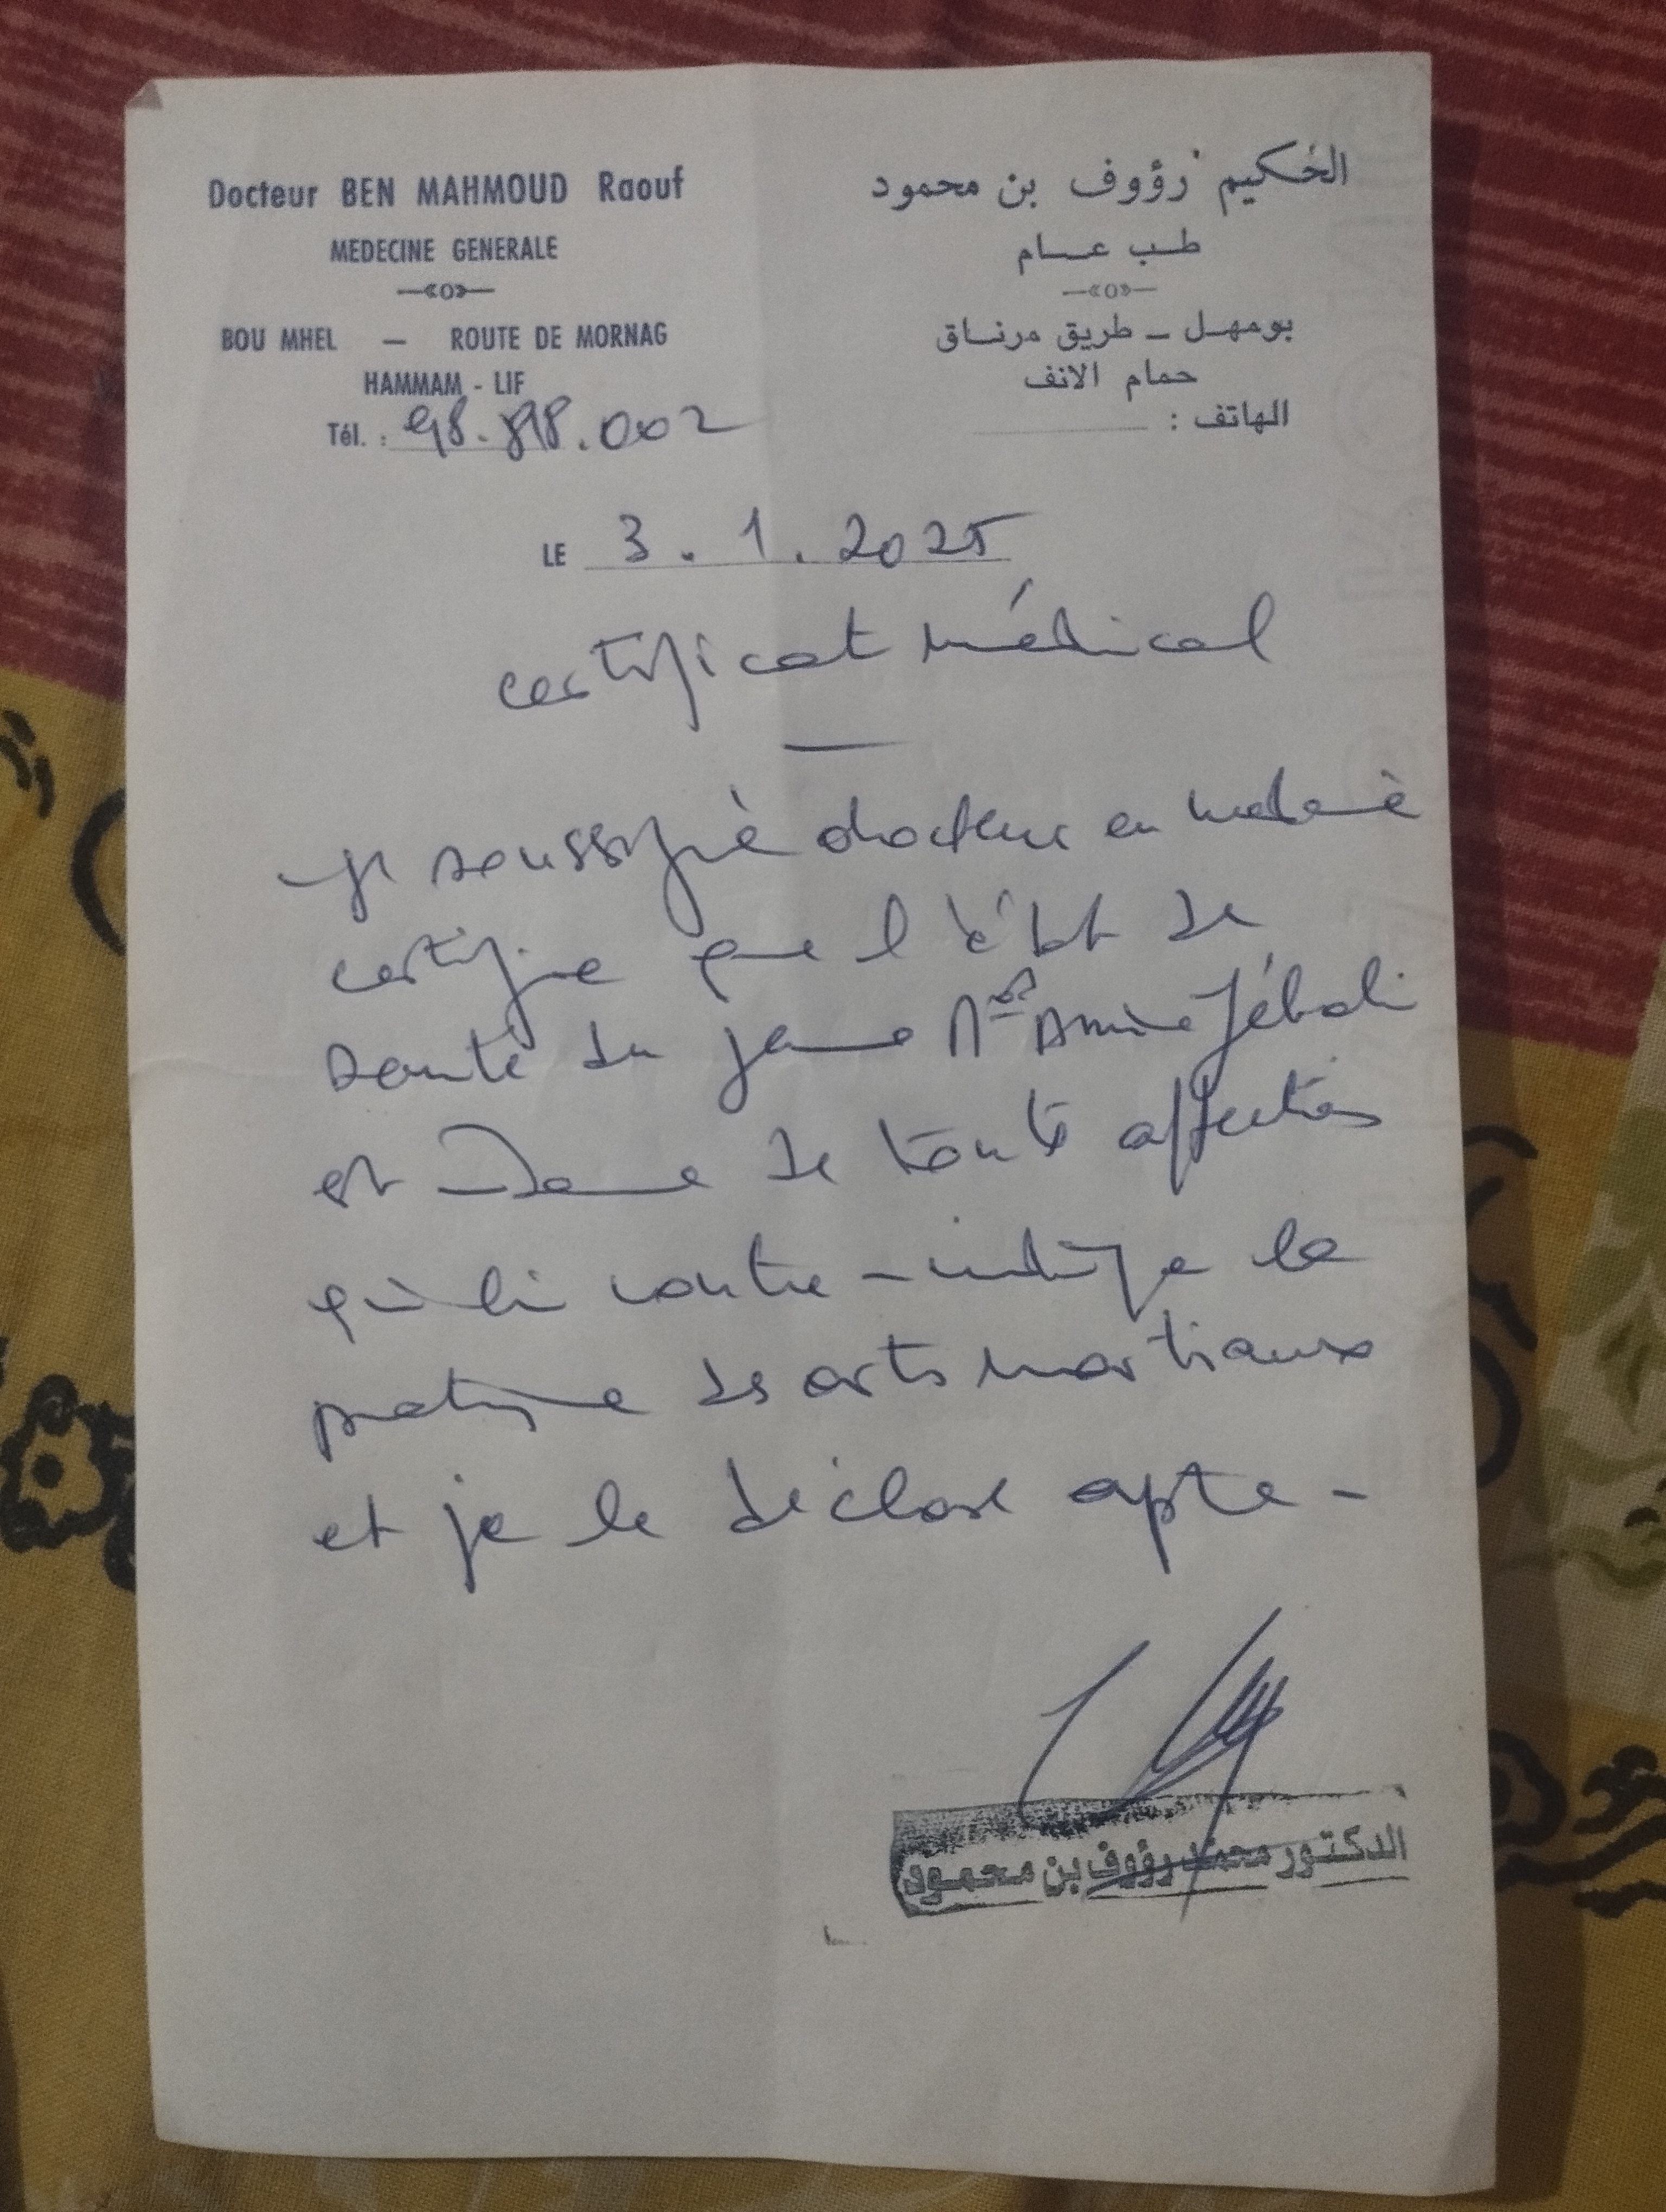 Docteur BEN MAHMOUD Raouf
MEDECINE GENERALE
BOU MHEL — ROUTE DE MORNAG
HAMMAM - LIF
Tél. : 98.898.002
الحكيم رؤوف بن محمود
طب عام
بومهل - طريق مرناق
حمام الانف
الهاتف :
LE 3.1.2025
certificat médical
Je soussigné docteur en médecine
certifie que l'état de
santé du jeune Med Amine Jébali
est indemne de toute affection
qui lui contre-indique la
pratique des arts martiaux
et je le déclare apte -
الدكتور محمد رؤوف بن محمود